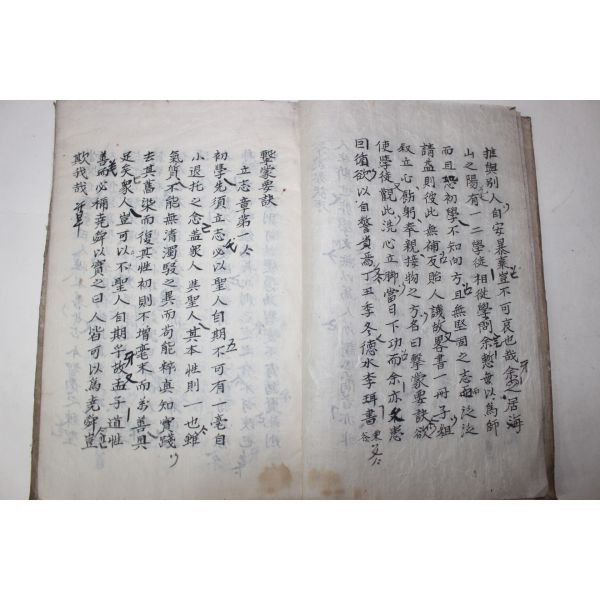 推與別人自安暴棄豈不可哀也哉余之居海
山之陽有一二學徒相從學問余慙無以爲師
而且恐初學不知向方且無堅固之志而泛泛
請益則彼此無補反貽人譏故畧書一冊子粗
叙立心飭躬奉親接物之方名曰擊蒙要訣欲
使學徒觀此洗心立脚當日下功而余亦久患
回循欲以自警責焉丁丑季冬德水李珥書
擊蒙要訣
立志章第一
初學先須立志必以聖人自期不可有一毫自
小退托之念盖衆人與聖人其本性則一也雖
氣質不能無清濁駁之異而苟能粹真知實踐
去其舊染而復其性初則不增毫末而萬善具
足矣衆人豈可以不聖人自期乎故孟子道性
善而必稱堯舜以實之曰人皆可以爲堯舜豈
欺我哉